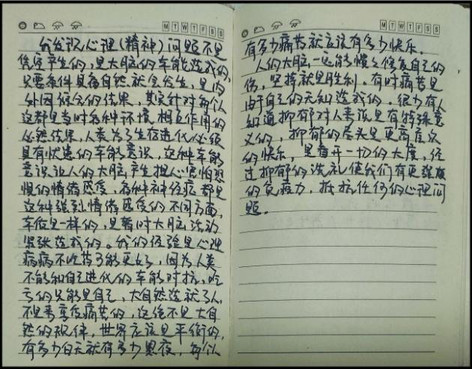 M T W T F S S
我发现心理(精神)问题不是
凭空产生的,是大脑的本能造成的,
只要条件具备自然就会发生,是内
外因结合的结果,其实针对每个人
这都是当时各种环境相互作用的
必然结果,人类为了生存进化必须
具有忧患的本能意识,这种本能
意识让人的大脑产生担心害怕恐
惧的情绪感受,各种神经症都是
这种强烈情绪感受的不同方面,
本质是一样的,是暂时大脑活动
紧张造成的。我的经验是心理
疾病不吃药才能更好,因为人类
不能和自己进化的本能对抗,吃
亏的只能是自己,大自然造就了人,
不是要变疾病苦的,这绝不是大自
然的规律,世界应该是平衡的,
有多少白天就有多少黑夜,每个人
M T W T F S S
有多少痛苦就应该有多少快乐。
人的大脑一定能慢慢修复自己的
伤,坚持就是胜利。有时痛苦是
由于自己的无知造成的。很少有人
知道抑郁对人类说是有特殊意
义的,抑郁的尽头是更高层次
的快乐,是看开一切的大度,经
过抑郁的洗礼使我们有更强大
的免疫力,抵抗任何的心理问
题。